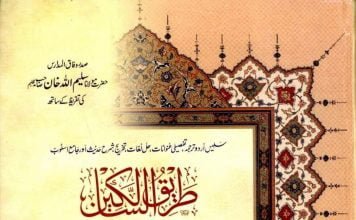 صدر وفاق المدارس
حضرت مولانا سلیم اللہ خان صاحب
کی تقریظ کے ساتھ
سلیس اُردو ترجمہ، تفصیلی عنوانات، حل لغات، تخریج، شرح حدیث اور جامع اسلوب
طریق السالکین